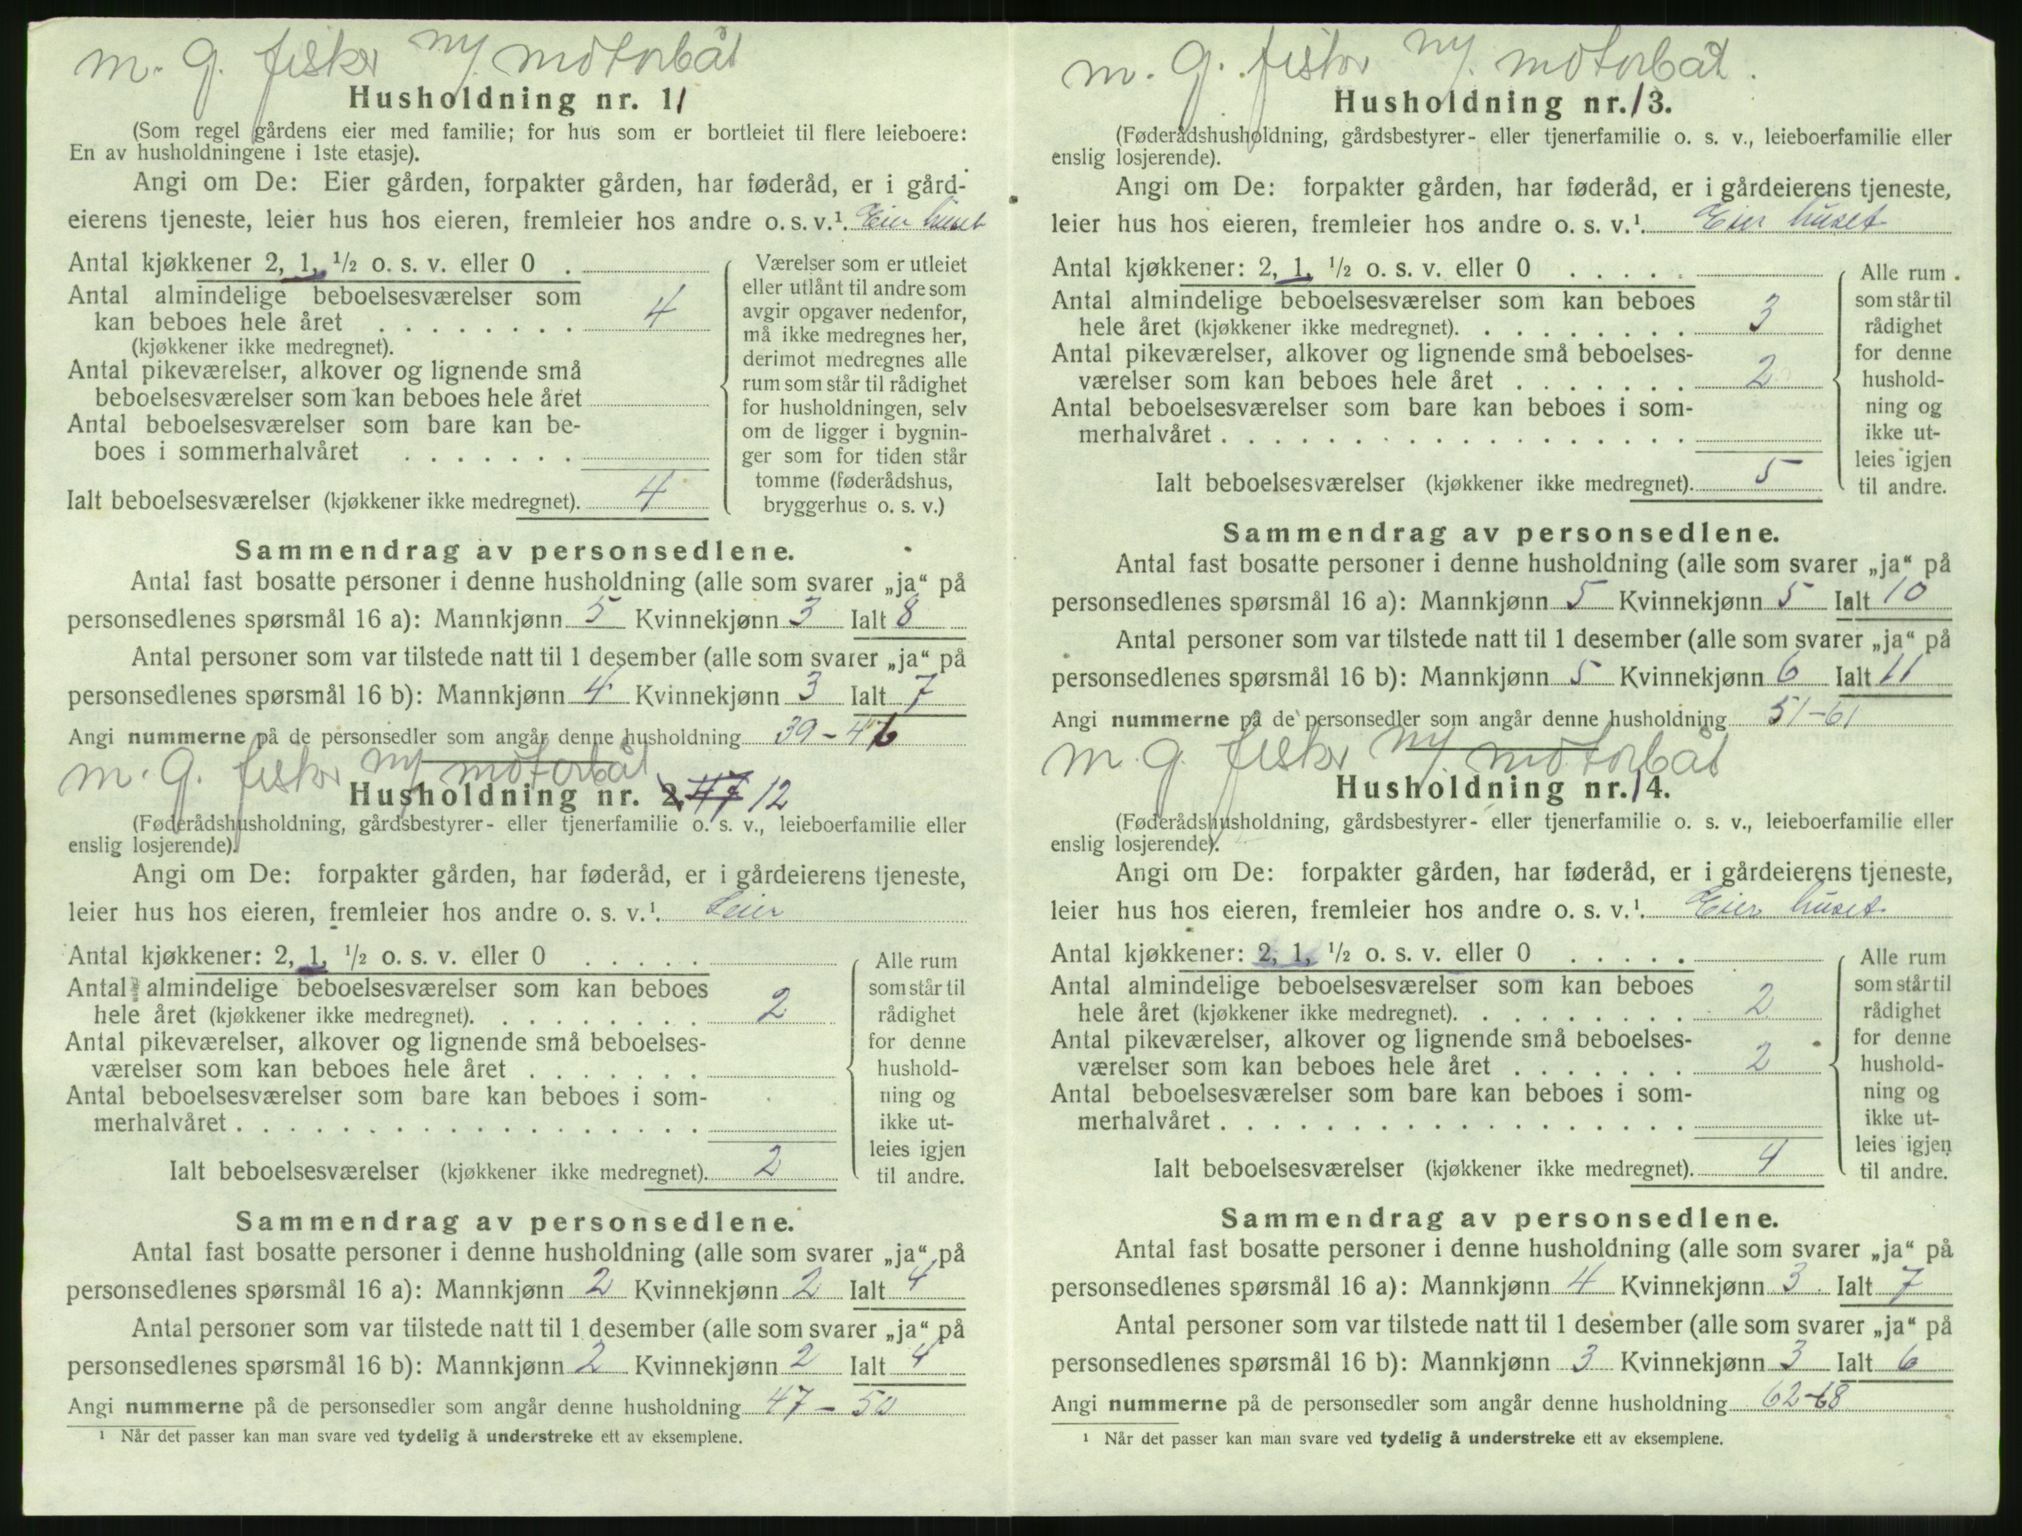 m. g. fisker ny motorbåt
Husholdning nr. 11
(Som regel gårdens eier med familie; for hus som er bortleiet til flere leieboere:
En av husholdningene i 1ste etasje).
Angi om De: Eier gården, forpakter gården, har føderåd, er i gård-
eierens tjeneste, leier hus hos eieren, fremleier hos andre o. s. v.¹. Eier huset
Antal kjøkkener 2, 1, ½ o. s. v. eller 0 .
Antal almindelige beboelsesværelser som
kan beboes hele året . . . . . . . . 4
(kjøkkener ikke medregnet).
Antal pikeværelser, alkover og lignende små
beboelsesværelser som kan beboes hele året
Antal beboelsesværelser som bare kan be-
boes i sommerhalvåret . . . . . . .
Ialt beboelsesværelser (kjøkkener ikke medregnet). 4
Værelser som er utleiet
eller utlånt til andre som
avgir opgaver nedenfor,
må ikke medregnes her,
derimot medregnes alle
rum som står til rådighet
for husholdningen, selv
om de ligger i bygnin-
ger som for tiden står
tomme (føderådshus,
bryggerhus o. s. v.)
Sammendrag av personsedlene.
Antal fast bosatte personer i denne husholdning (alle som svarer „ja“ på
personsedlenes spørsmål 16 a): Mannkjønn 5 Kvinnekjønn 3 Ialt 8
Antal personer som var tilstede natt til 1 desember (alle som svarer „ja“ på
personsedlenes spørsmål 16 b): Mannkjønn 4 Kvinnekjønn 3 Ialt 7
Angi nummerne på de personsedler som angår denne husholdning 39-46
m. g. fisker ny motorbåt
Husholdning nr. 2. 47 12
(Føderådshusholdning, gårdsbestyrer- eller tjenerfamilie o. s. v., leieboerfamilie eller
enslig losjerende).
Angi om De: forpakter gården, har føderåd, er i gårdeierens tjeneste,
leier hus hos eieren, fremleier hos andre o. s. v.¹. Leier
Antal kjøkkener: 2, 1, ½ o. s. v. eller 0 . . . . .
Antal almindelige beboelsesværelser som kan beboes
hele året (kjøkkener ikke medregnet). . . . . . . . . 2
Antal pikeværelser, alkover og lignende små beboelses-
værelser som kan beboes hele året . . . . . . .
Antal beboelsesværelser som bare kan beboes i som-
merhalvåret . . . . . . . . . . . . . . . . . .
Ialt beboelsesværelser (kjøkkener ikke medregnet). 2
Alle rum
som står til
rådighet
for denne
hushold-
ning og
ikke ut-
leies igjen
til andre.
Sammendrag av personsedlene.
Antal fast bosatte personer i denne husholdning (alle som svarer „ja“ på
personsedlenes spørsmål 16 a): Mannkjønn 2 Kvinnekjønn 2 Ialt 4
Antal personer som var tilstede natt til 1 desember (alle som svarer „ja“ på
personsedlenes spørsmål 16 b): Mannkjønn 2 Kvinnekjønn 2 Ialt 4
Angi nummerne på de personsedler som angår denne husholdning 47-50
¹ Når det passer kan man svare ved tydelig å understreke ett av eksemplene.
m. g. fisker ny motorbåt.
Husholdning nr. 13.
(Føderådshusholdning, gårdsbestyrer- eller tjenerfamilie o. s. v., leieboerfamilie eller
enslig losjerende).
Angi om De: forpakter gården, har føderåd, er i gårdeierens tjeneste,
leier hus hos eieren, fremleier hos andre o. s. v.¹. Eier huset
Antal kjøkkener: 2, 1, ½ o. s. v. eller 0 . . . . .
Antal almindelige beboelsesværelser som kan beboes
hele året (kjøkkener ikke medregnet). . . . . . . . . 3
Antal pikeværelser, alkover og lignende små beboelses-
værelser som kan beboes hele året . . . . . . . 2
Antal beboelsesværelser som bare kan beboes i som-
merhalvåret . . . . . . . . . . . . . . . . . .
Ialt beboelsesværelser (kjøkkener ikke medregnet). 5
Alle rum
som står til
rådighet
for denne
hushold-
ning og
ikke ut-
leies igjen
til andre.
Sammendrag av personsedlene.
Antal fast bosatte personer i denne husholdning (alle som svarer „ja“ på
personsedlenes spørsmål 16 a): Mannkjønn 5 Kvinnekjønn 5 Ialt 10
Antal personer som var tilstede natt til 1 desember (alle som svarer „ja“ på
personsedlenes spørsmål 16 b): Mannkjønn 5 Kvinnekjønn 6 Ialt 11
Angi nummerne på de personsedler som angår denne husholdning 51-61
m. g. fisker ny motorbåt
Husholdning nr. 14.
(Føderådshusholdning, gårdsbestyrer- eller tjenerfamilie o. s. v., leieboerfamilie eller
enslig losjerende).
Angi om De: forpakter gården, har føderåd, er i gårdeierens tjeneste,
leier hus hos eieren, fremleier hos andre o. s. v.¹. Eier huset
Antal kjøkkener: 2, 1, ½ o. s. v. eller 0 . . . . .
Antal almindelige beboelsesværelser som kan beboes
hele året (kjøkkener ikke medregnet). . . . . . . . . 2
Antal pikeværelser, alkover og lignende små beboelses-
værelser som kan beboes hele året . . . . . . . 2
Antal beboelsesværelser som bare kan beboes i som-
merhalvåret . . . . . . . . . . . . . . . . . .
Ialt beboelsesværelser (kjøkkener ikke medregnet). 4
Alle rum
som står til
rådighet
for denne
hushold-
ning og
ikke ut-
leies igjen
til andre.
Sammendrag av personsedlene.
Antal fast bosatte personer i denne husholdning (alle som svarer „ja“ på
personsedlenes spørsmål 16 a): Mannkjønn 4 Kvinnekjønn 3 Ialt 7
Antal personer som var tilstede natt til 1 desember (alle som svarer „ja“ på
personsedlenes spørsmål 16 b): Mannkjønn 3 Kvinnekjønn 3 Ialt 6
Angi nummerne på de personsedler som angår denne husholdning 62-68
¹ Når det passer kan man svare ved tydelig å understreke ett av eksemplene.